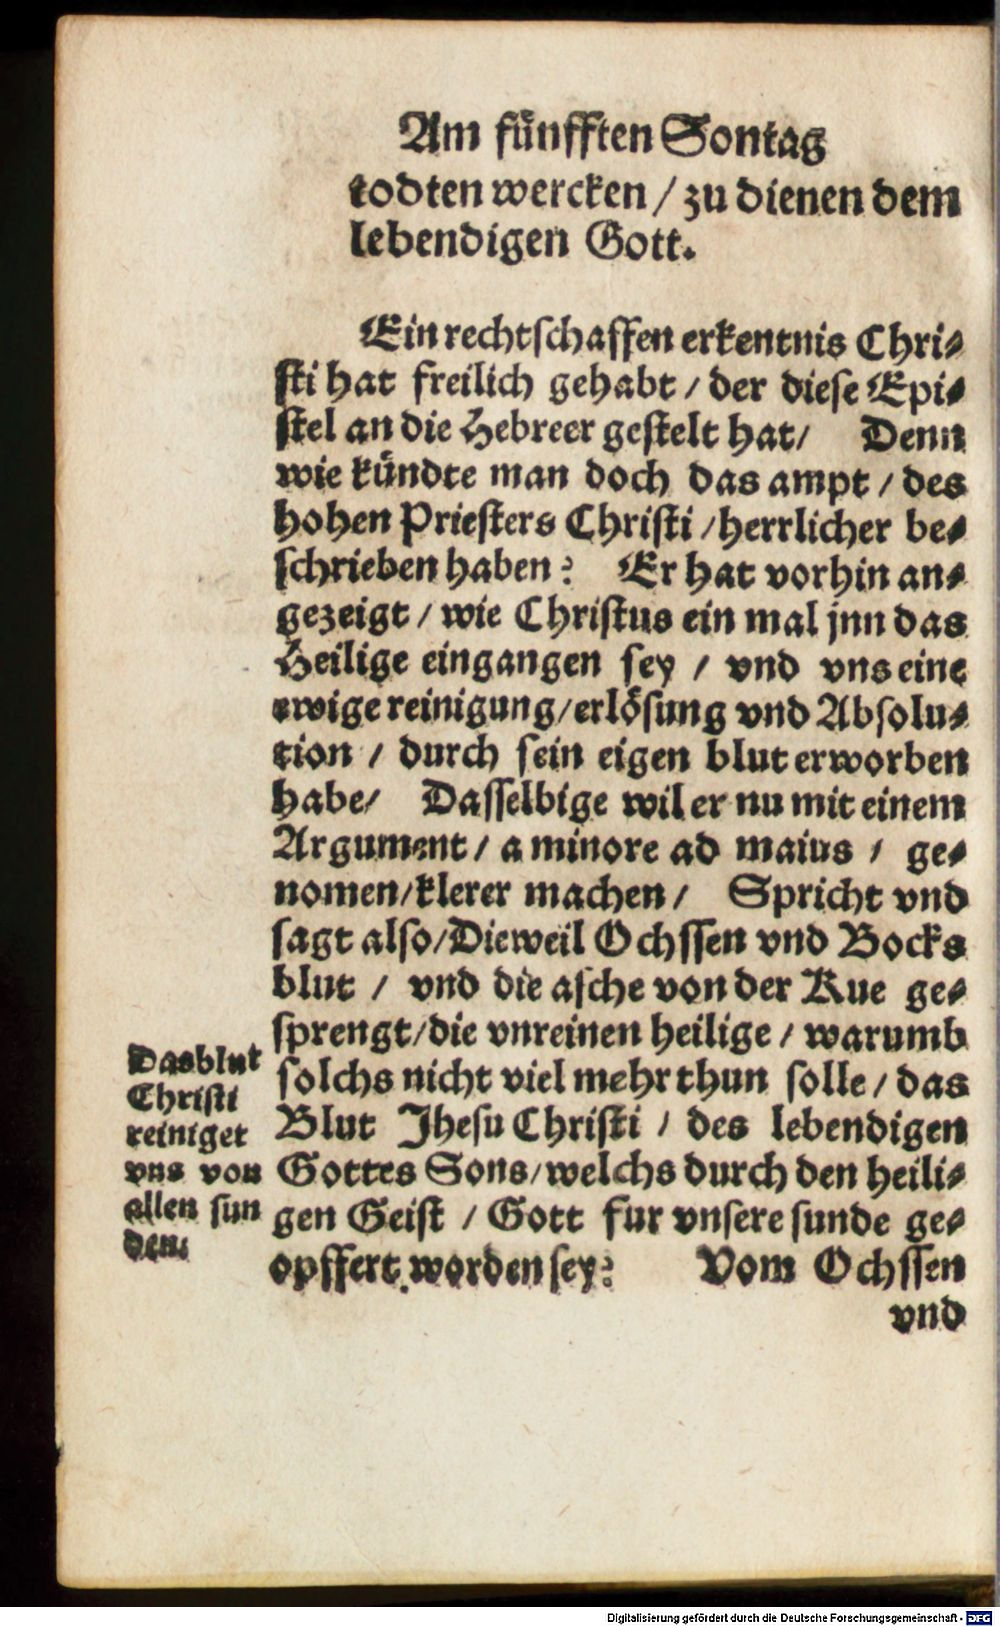 Am fünfften Sontag
todten wercken / zu dienen dem
lebendigen Gott.
Ein rechtschaffen erkentnis Chri-
sti hat freilich gehabt / der diese Epi-
stel an die Hebreer gestelt hat / Denn
wie kündte man doch das ampt / des
hohen Priesters Christi / herrlicher be-
schrieben haben? Er hat vorhin an-
gezeigt / wie Christus ein mal jnn das
Heilige eingangen sey / vnd vns eine
ewige reinigung / erlösung vnd Absolu-
tion / durch sein eigen blut erworben
habe / Dasselbige wil er nu mit einem
Argument / a minore ad maius / ge-
nomen / klerer machen / Spricht vnd
sagt also / Dieweil Ochssen vnd Bocks
blut / vnd die asche von der Kue ge-
sprengt / die vnreinen heilige / warumb
solchs nicht viel mehr thun solle / das
Blut Jhesu Christi / des lebendigen
Gottes Sons / welchs durch den heili-
gen Geist / Gott fur vnsere sunde ge-
opffert worden sey? Vom Ochssen
vnd
Das blut
Christi
reiniget
vns von
allen sun
den.
Digitalisierung gefördert durch die Deutsche Forschungsgemeinschaft - DFG